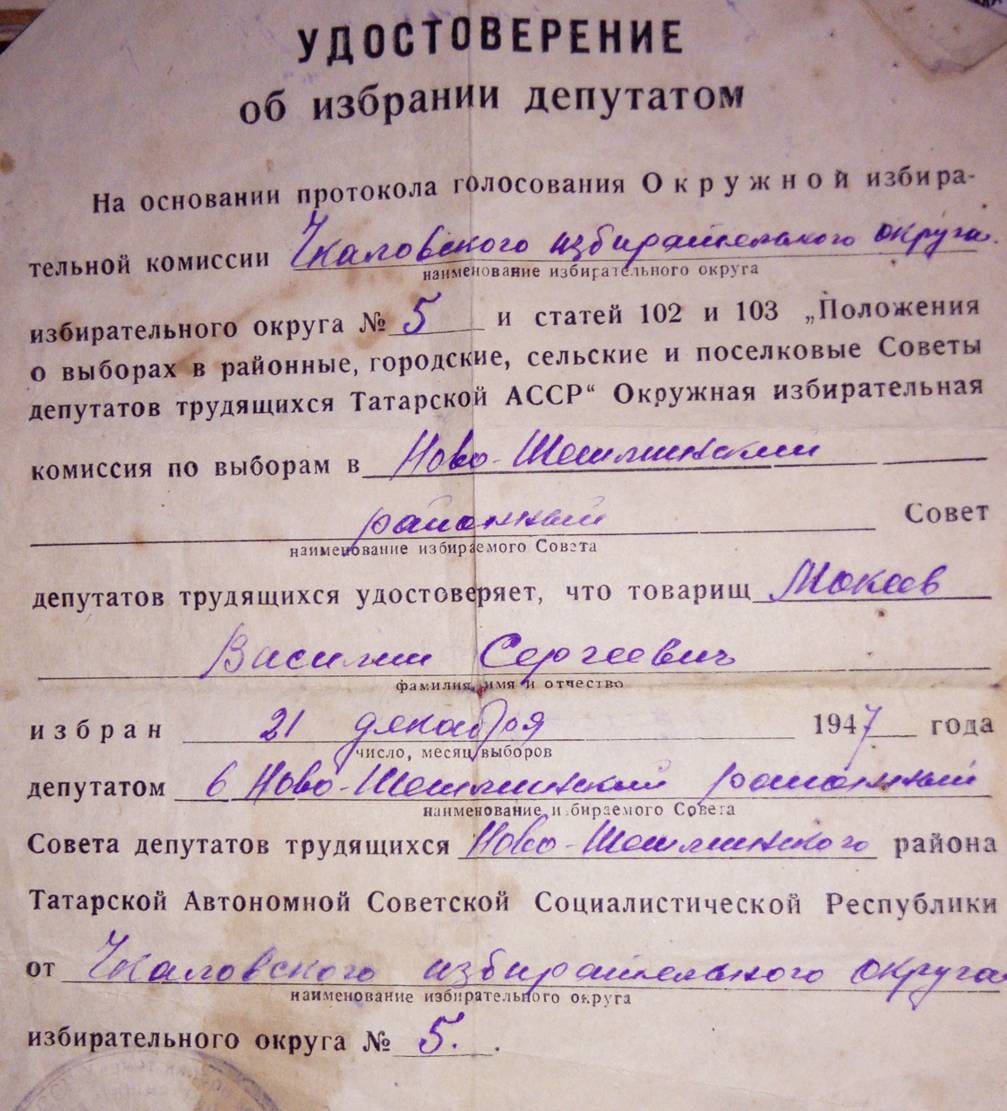 УДОСТОВЕРЕНИЕ
об избрании депутатом
На основании протокола голосования Окружной избира-
тельной комиссии Чкаловского избирательного округа.
наименование избирательного округа
избирательного округа № 5 и статей 102 и 103 „Положения
о выборах в районные, городские, сельские и поселковые Советы
депутатов трудящихся Татарской АССР“ Окружная избирательная
комиссия по выборам в Ново-Шешминский
районный Совет
наименование избираемого Совета
депутатов трудящихся удостоверяет, что товарищ Мокеев
Василий Сергеевич
фамилия, имя и отчество
избран 21 декабря 1947 года
число, месяц выборов
депутатом в Ново-Шешминский районный
наименование избираемого Совета
Совета депутатов трудящихся Ново-Шешминского района
Татарской Автономной Советской Социалистической Республики
от Чкаловского избирательного округа
наименование избирательного округа
избирательного округа № 5. .